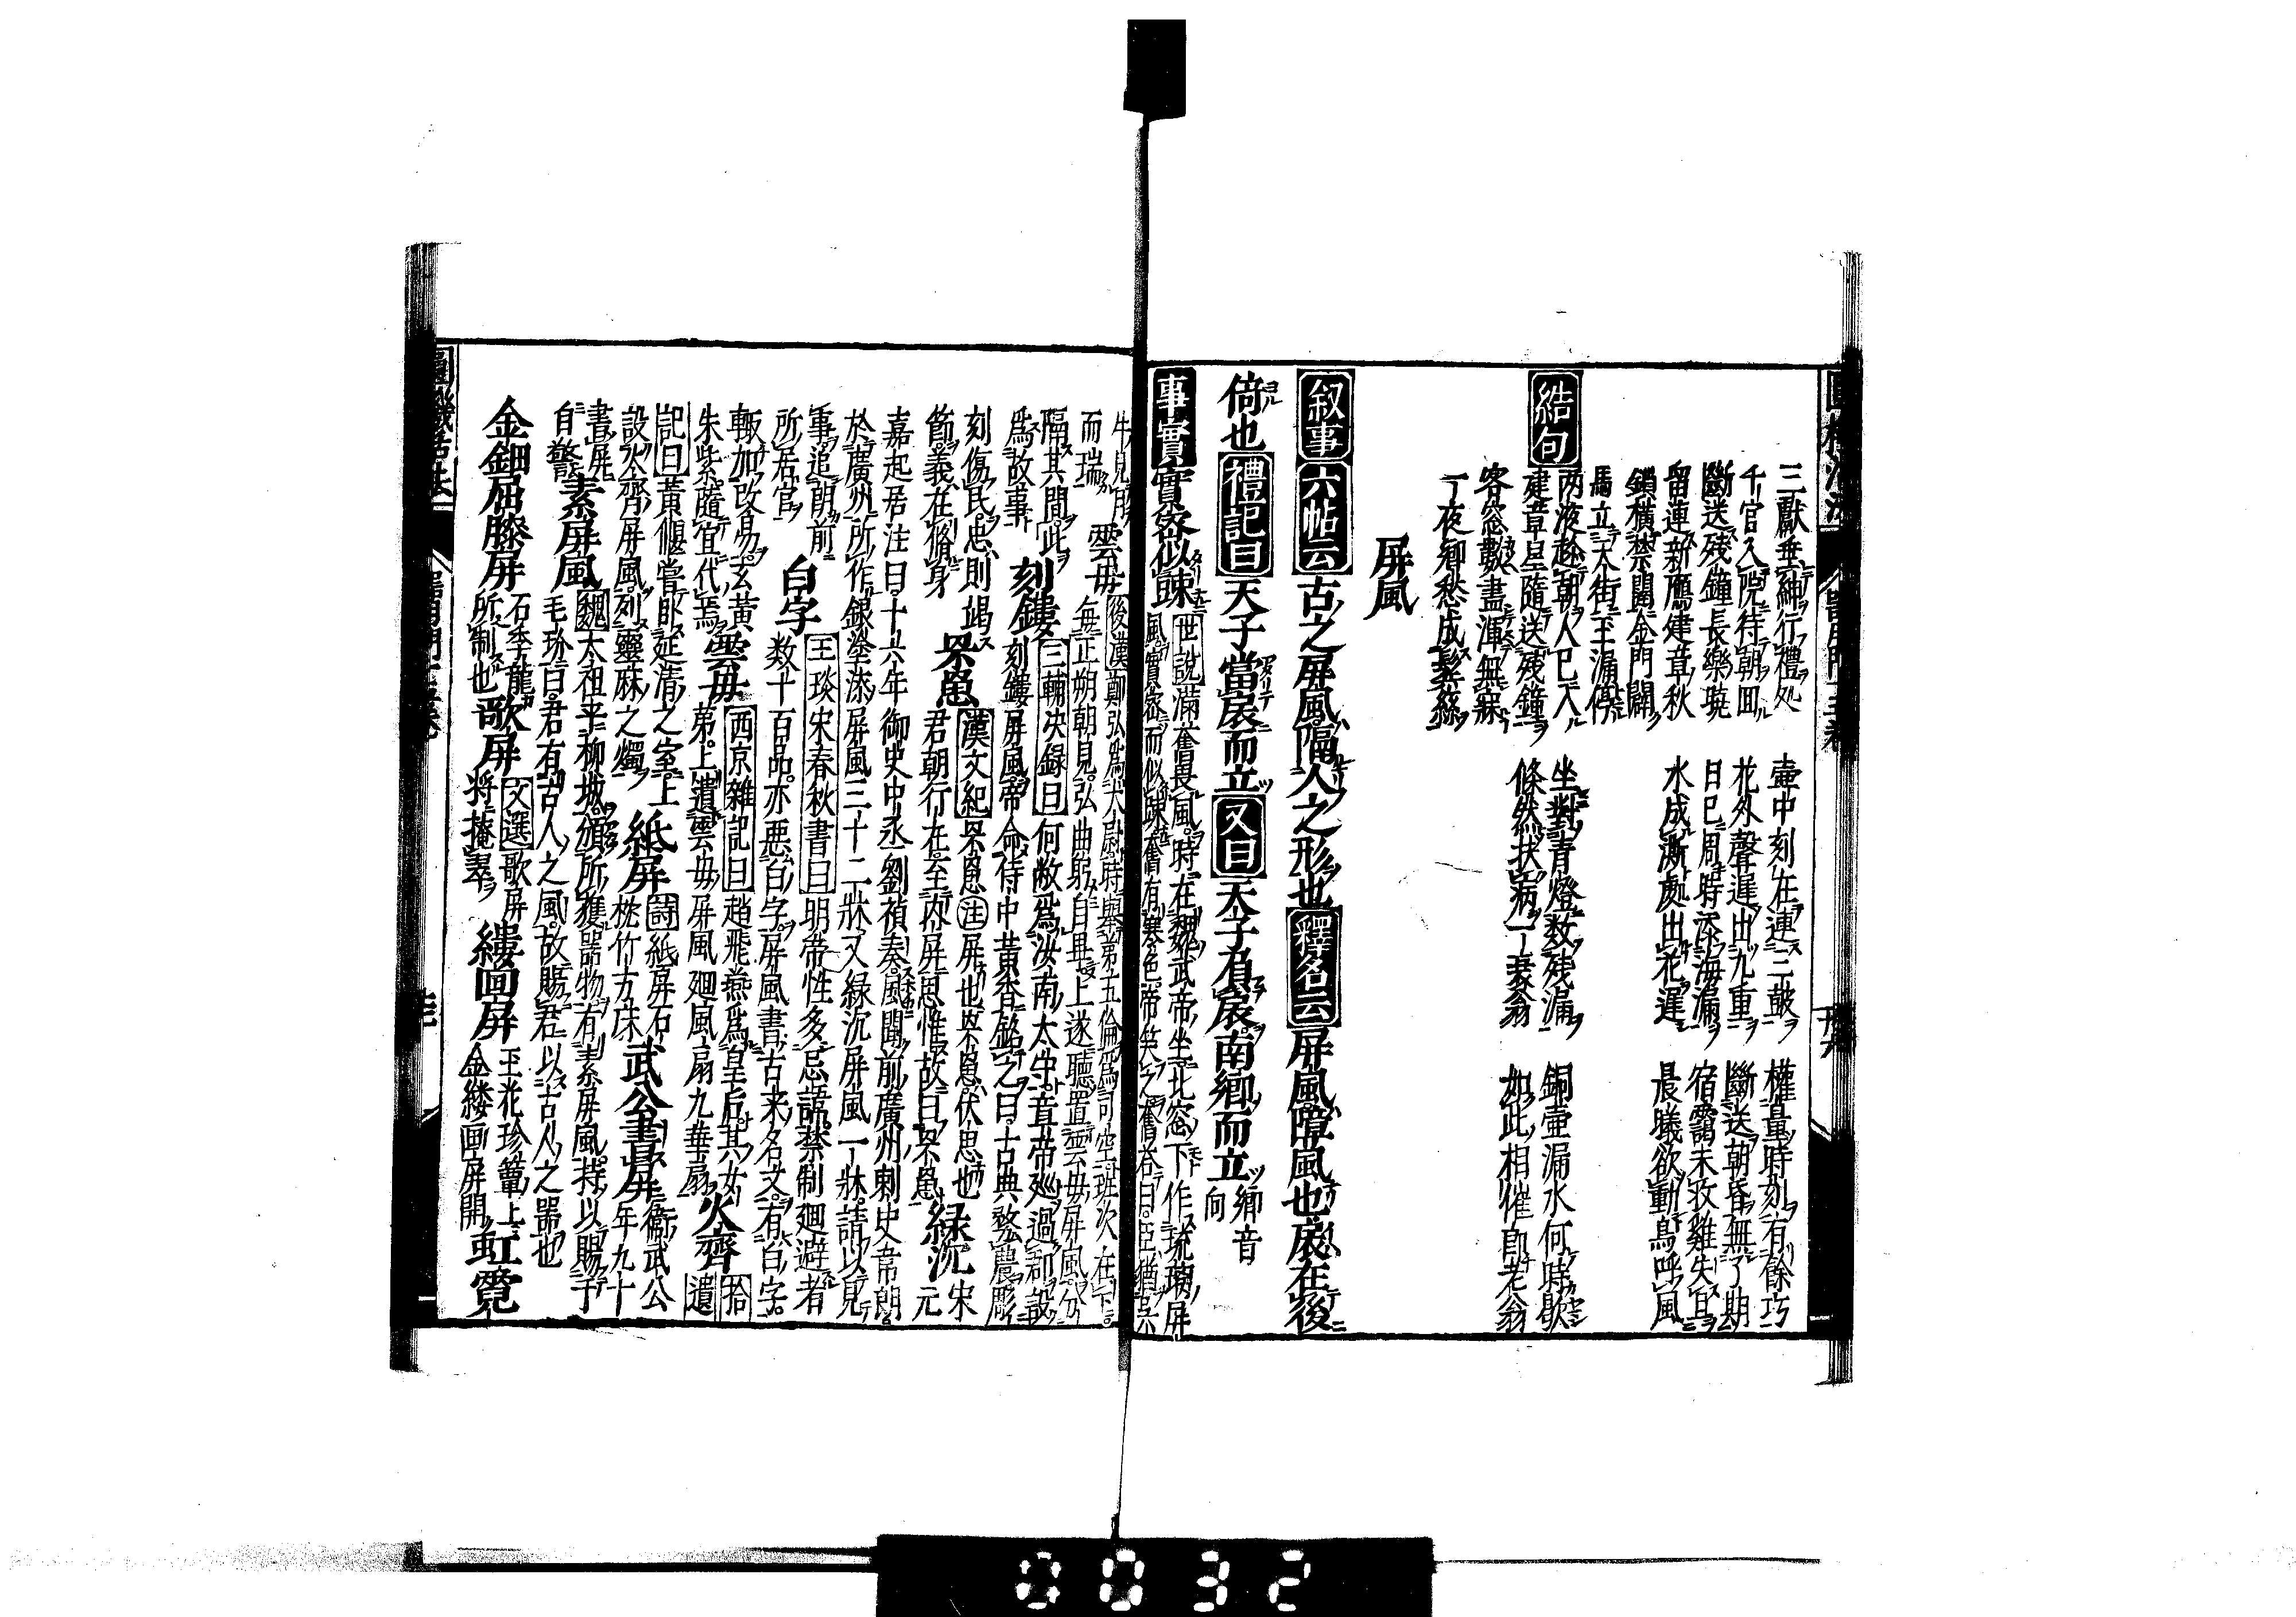 三獻垂紳行禮処　壷中刻在連三皷　權量時刻有餘巧
千官入院待朝回　花外聲遲出九重　斷送朝昏無了期
斷送残鐘長樂曉　日已周時添海漏　宿靄未收雞失旦
留連新鴈建章秋　水成漸處出花遲　晨曦欲動鳥呼風
鎖橫禁闥金門闢
馬立天街玉漏停
結句
两液趁朝人已入　坐對青燈数残漏　銅壷漏水何時歇
建章呈隨送残鐘　條然扶病一衰翁　如此相催即老翁
客窓數盡渾無寐
一夜鄉愁成髮絲
屏風
叙事　六帖云　古之屏風隔人之形也　釋名云　屏風障風也扆在後
倚也　禮記曰　天子當扆而立　又曰　天子負扆南鄉而立　鄉音向
事實　實密似踈　世說　滿奮畏風時在魏武帝坐北窓下作琉璃屏
風實密而似踈奮有寒色帝笑之奮答曰臣猶吳
牛見月而　雲母　後漢　鄭弘為太尉時舉弟五倫為司空班次在下
每正朔朝見弘曲躬自卑上遂聽置雲毋屏風分
隔其間此為故事　刻鏤　三輔决録曰　何敞為汝南太守章帝廵過郡設
刻鏤屏風帝命侍中黃香銘之曰古典務農彫
刻傷民忠則竭節義在脩身　罘罳　漢文紀　罘罳注屏也罘罳伏思也　緑沉　宋元
君朝行在至内屏思惟故曰罘罳
嘉起居注曰十六年御史中丞劉禎奏風聞前廣州刺史韋朗
於廣州所作銀塗漆屏風三十二牀又緑沉屏風一牀請以見
事追朗前所居官　白字　王琰宋春秋書曰　明帝性多忌諱禁制廻避者
数十百品亦惡白字屏風書古来名文有白字
輙加改易玄黃朱紫隨宜代焉　雲毋　西京雜記曰　趙飛燕為皇后其女弟上遺雲毋屏風廻風扇九華扇　火齊　拾遺
記曰　董偃嘗卧延清之室上設火齊屏風列靈麻之燭　紙屏　詩　紙屏石枕竹方床　武公書屏　衞武公年九十
書屏自警　素屏風　魏　太祖平柳城頒所獲噐物有素屏風持以賜
毛玠曰君有古人之風故賜君以古人之噐也
金鈿屈膝屏　石季龍所制也　歌屏　文選　歌屏将掩翠　縷画屏　玉花珍簟上金縷画屏開　虹霓
0032